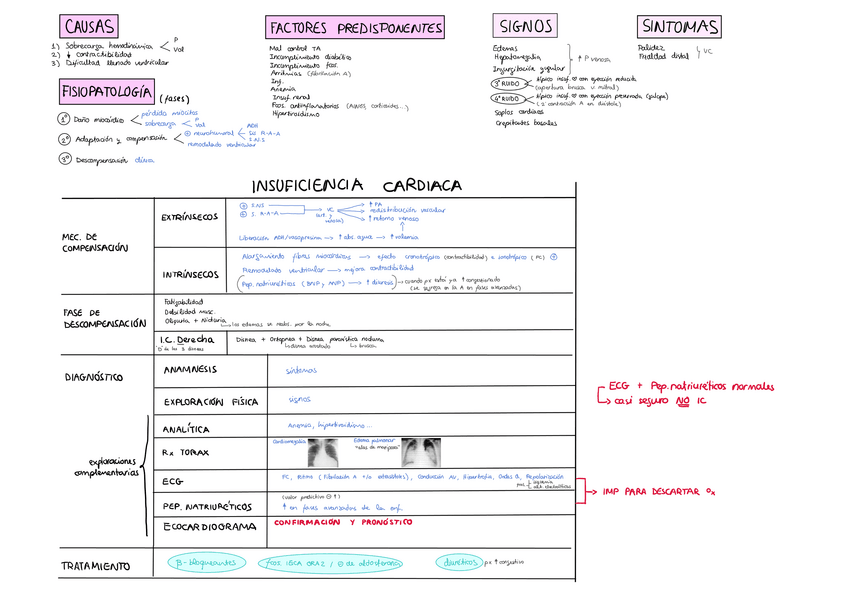 CAUSAS
1) Sobrecarga hemodinámica < P
Vol
2) ↓ contractibilidad
3) Dificultad llenado ventricular
FACTORES PREDISPONENTES
Mal control TA
Incumplimiento diabético
Incumplimiento fcos.
Arritmias (fibrilación A)
Inf.
Anemia
Insuf. renal
Fcos. antiinflamatorios (AINES, corticoides...)
Hipertiroidismo
SIGNOS
Edemas
Hepatomegalia
Ingurgitación yugular
↑ P venosa
3º RUIDO típico insuf. con eyección reducida
(apertura brusca v. mitral)
4º RUIDO típico insuf. con eyección preservada (galope)
(2ª contracción A en diástole)
Soplos cardiacos
Crepitantes basales
SINTOMAS
Palidez
Frialdad distal
VC
FISIOPATOLOGÍA (fases)
1º Daño miocárdico < pérdida miocitos
sobrecarga < P
Vol
2º Adaptación y compensación < ⊕ neurohumoral < ADH
Sis R-A-A
S.N.S
remodelado ventricular
3º Descompensación clínica
INSUFICIENCIA CARDIACA
MEC. DE COMPENSACIÓN
EXTRÍNSECOS
⊕ S.N.S
⊕ S. R-A-A
VC (art. y venosa)
↑ PA
redistribución vascular
↑ retorno venoso
Liberación ADH/vasopresina → ↑ abs. agua → ↑ volemia
INTRÍNSECOS
Alargamiento fibras miocárdicas → efecto cronotrópico (contractibilidad) e inotrópico (FC) ⊕
Remodelado ventricular → mejora contractibilidad
(Pep. natriuréticos (BNP y ANP) → ↑ diuresis) → cuando px está ya ↑ congestionado
(se segrega en la A en fases avanzadas)
FASE DE DESCOMPENSACIÓN
Fatigabilidad
Debilidad musc.
Oliguria + Nicturia
↳ los edemas se reabs. por la noche
I.C. Derecha
Disnea + Ortopnea + Disnea paroxística nocturna
↳ disnea acostado
↳ brusca
DIAGNÓSTICO
ANAMNESIS
síntomas
EXPLORACIÓN FÍSICA
signos
exploraciones complementarias
ANALÍTICA
Anemia, hipertiroidismo...
Rx TORAX
Cardiomegalia
Edema pulmonar
"alas de mariposa"
ECG
FC, Ritmo (Fibrilación A y/o extrasístoles), Conducción AV, Hipertrofia, Ondas Q, Repolarización
isquemia
PEP. NATRIURÉTICOS
(valor predictivo ⊖ ↑)
↑ en fases avanzadas de la enf.
ECOCARDIOGRAMA
CONFIRMACIÓN Y PRONÓSTICO
ECG + Pep. natriuréticos normales
↳ casi seguro NO IC
→ IMP PARA DESCARTAR Dx
TRATAMIENTO
β-bloqueantes
fcos. IECA ORA2 / ⊖ de aldosterona
diuréticos px ↑ congestivo